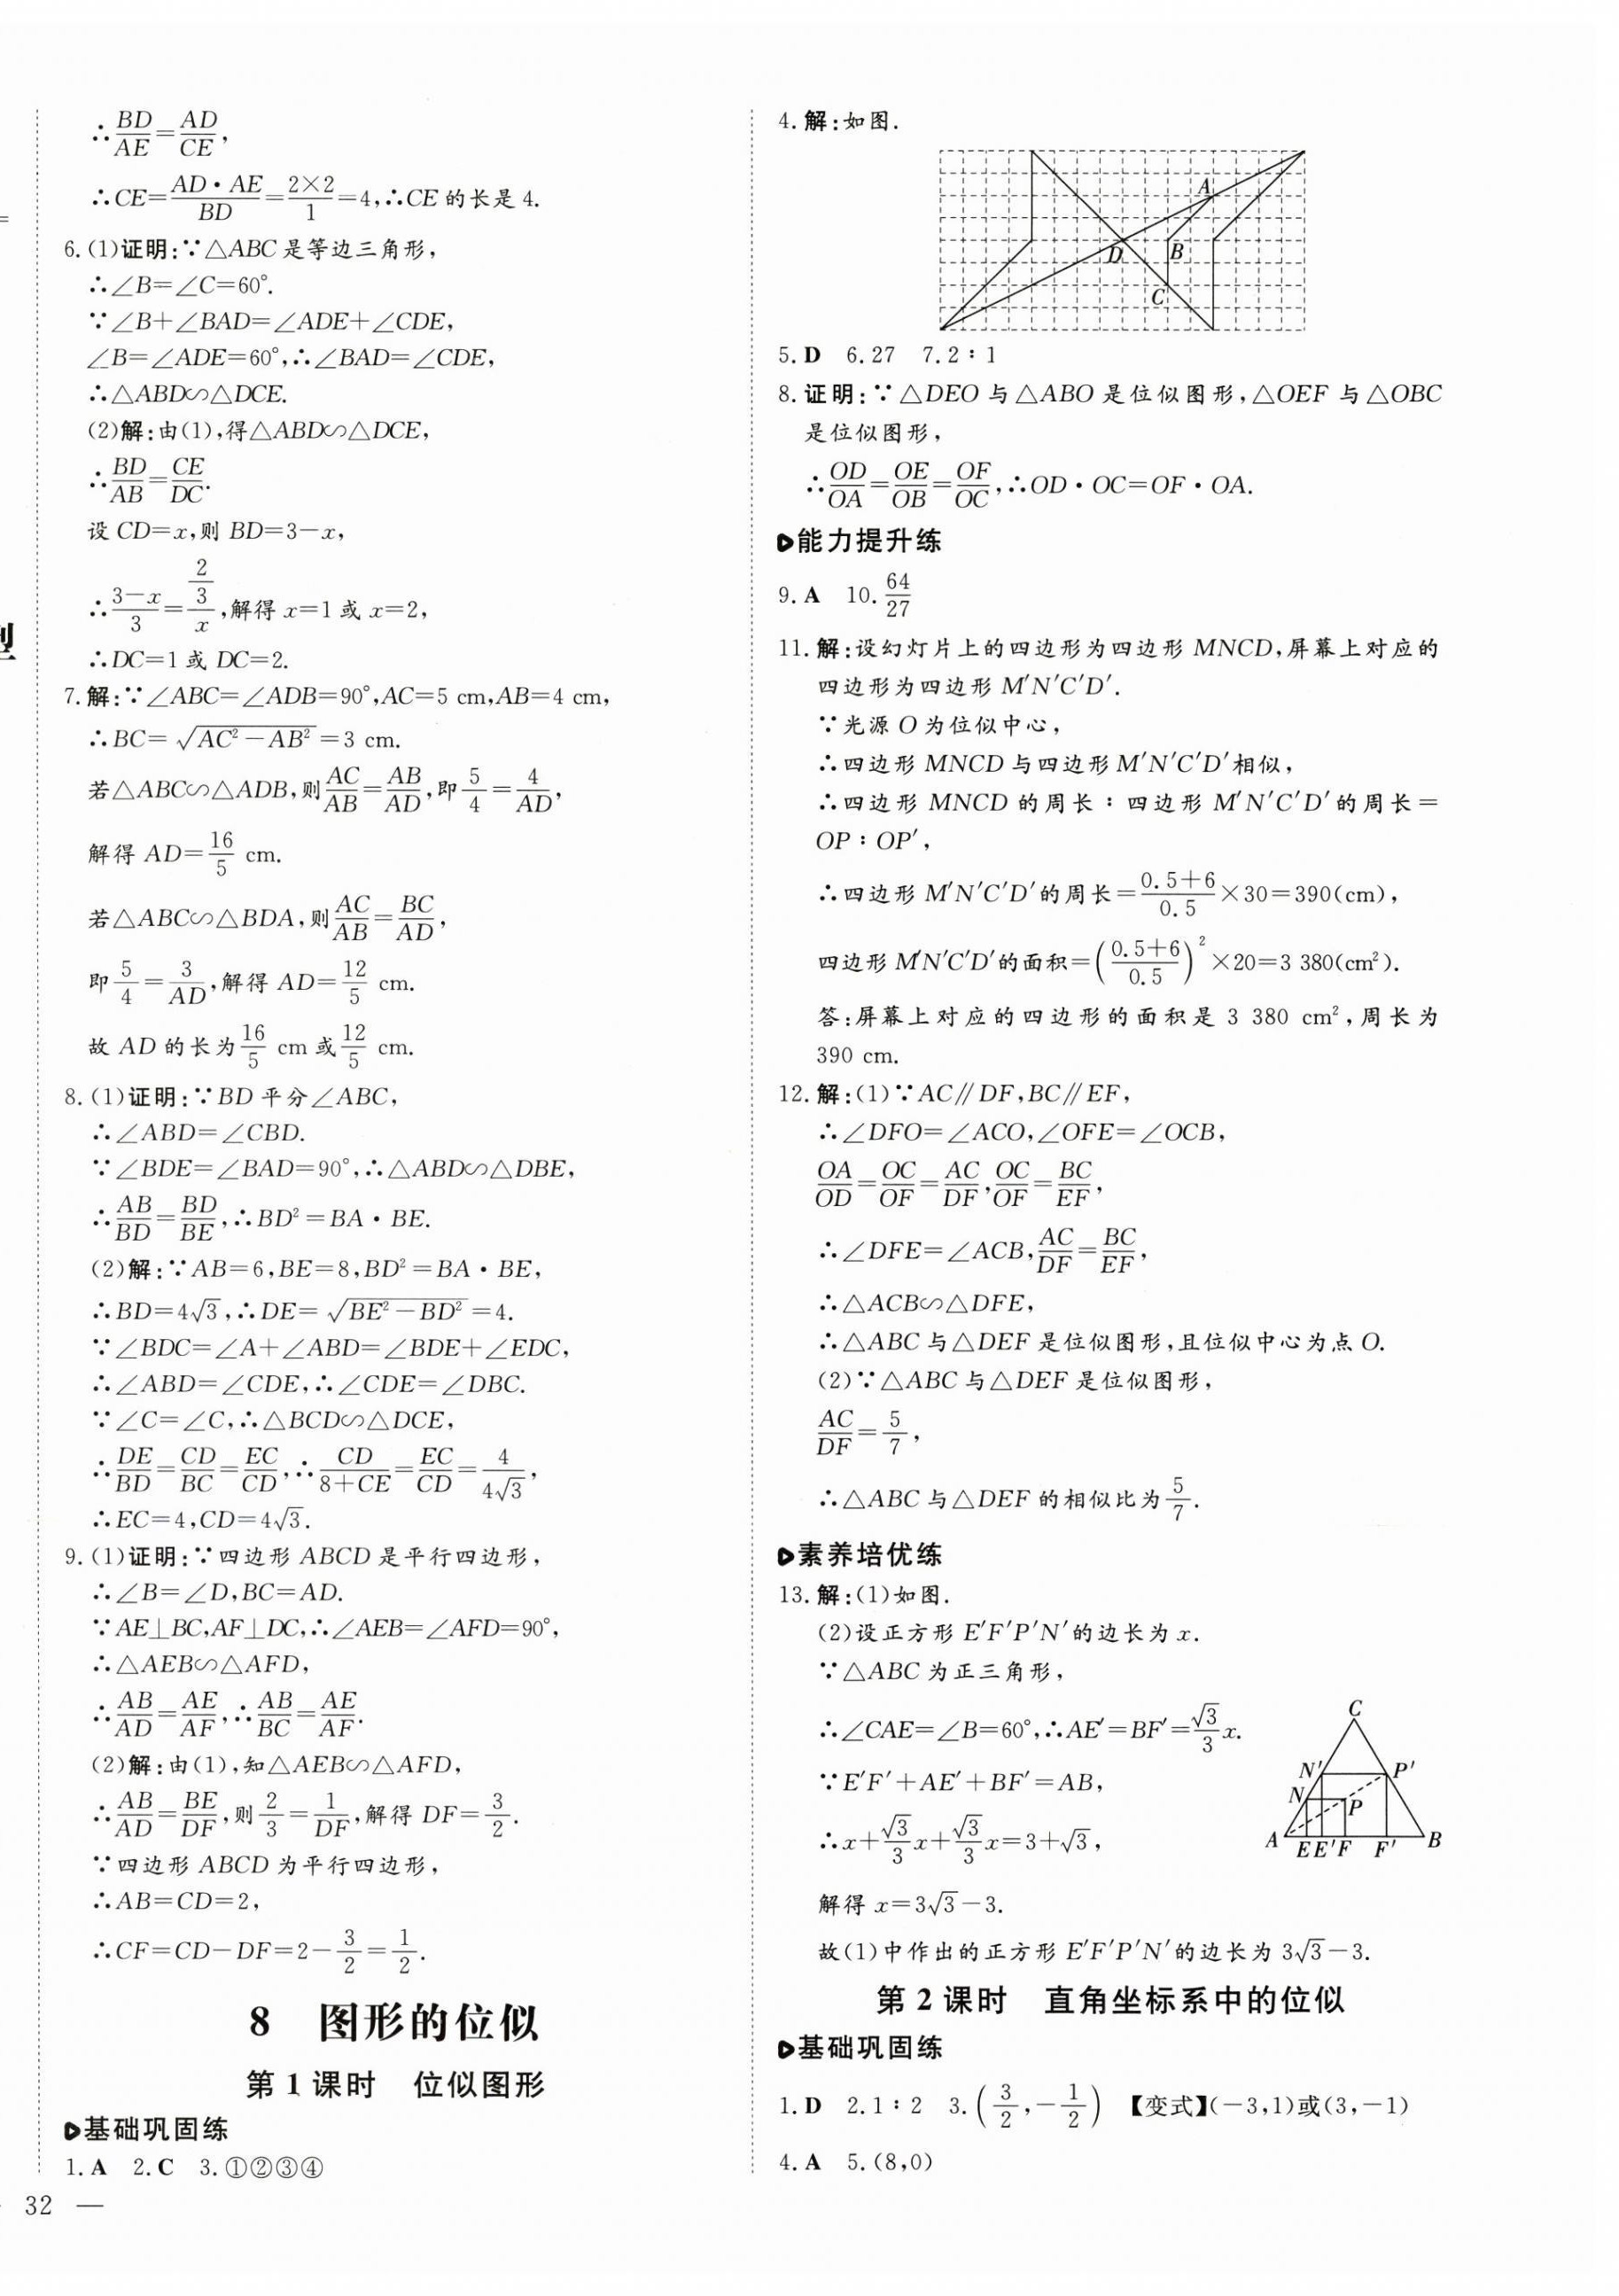 =
型
∴BD/AE=AD/CE,
∴CE=AD·AE/BD=2×2/1=4,∴CE的长是4.
6.(1)证明:∵△ABC是等边三角形,
∴∠B=∠C=60°.
∵∠B+∠BAD=∠ADE+∠CDE,
∠B=∠ADE=60°,∴∠BAD=∠CDE,
∴△ABD∽△DCE.
(2)解:由(1),得△ABD∽△DCE,
∴BD/AB=CE/DC.
设CD=x,则BD=3-x,
∴(3-x)/3=(2/3)/x,解得x=1或x=2,
∴DC=1或DC=2.
7.解:∵∠ABC=∠ADB=90°,AC=5 cm,AB=4 cm,
∴BC=√(AC²-AB²)=3 cm.
若△ABC∽△ADB,则AC/AB=AB/AD,即5/4=4/AD,
解得AD=16/5 cm.
若△ABC∽△BDA,则AC/AB=BC/AD,
即5/4=3/AD,解得AD=12/5 cm.
故AD的长为16/5 cm或12/5 cm.
8.(1)证明:∵BD平分∠ABC,
∴∠ABD=∠CBD.
∵∠BDE=∠BAD=90°,∴△ABD∽△DBE,
∴AB/BD=BD/BE,∴BD²=BA·BE.
(2)解:∵AB=6,BE=8,BD²=BA·BE,
∴BD=4√3,∴DE=√(BE²-BD²)=4.
∵∠BDC=∠A+∠ABD=∠BDE+∠EDC,
∴∠ABD=∠CDE,∴∠CDE=∠DBC.
∵∠C=∠C,∴△BCD∽△DCE,
∴DE/BD=CD/BC=EC/CD,∴CD/(8+CE)=EC/CD=4/(4√3),
∴EC=4,CD=4√3.
9.(1)证明:∵四边形ABCD是平行四边形,
∴∠B=∠D,BC=AD.
∵AE⊥BC,AF⊥DC,∴∠AEB=∠AFD=90°,
∴△AEB∽△AFD,
∴AB/AD=AE/AF,∴AB/BC=AE/AF.
(2)解:由(1),知△AEB∽△AFD,
∴AB/AD=BE/DF,则2/3=1/DF,解得DF=3/2.
∵四边形ABCD为平行四边形,
∴AB=CD=2,
∴CF=CD-DF=2-3/2=1/2.
8 图形的位似
第1课时 位似图形
基础巩固练
1.A 2.C 3.①②③④
32 —
4.解:如图.
A
D
B
C
5.D 6.27 7.2∶1
8.证明:∵△DEO与△ABO是位似图形,△OEF与△OBC
是位似图形,
∴OD/OA=OE/OB=OF/OC,∴OD·OC=OF·OA.
能力提升练
9.A 10.64/27
11.解:设幻灯片上的四边形为四边形MNCD,屏幕上对应的
四边形为四边形M′N′C′D′.
∵光源O为位似中心,
∴四边形MNCD与四边形M′N′C′D′相似,
∴四边形MNCD的周长∶四边形M′N′C′D′的周长=
OP∶OP′,
∴四边形M′N′C′D′的周长=(0.5+6)/0.5×30=390(cm),
四边形M′N′C′D′的面积=((0.5+6)/0.5)²×20=3 380(cm²).
答:屏幕上对应的四边形的面积是3 380 cm²,周长为
390 cm.
12.解:(1)∵AC∥DF,BC∥EF,
∴∠DFO=∠ACO,∠OFE=∠OCB,
OA/OD=OC/OF=AC/DF,OC/OF=BC/EF,
∴∠DFE=∠ACB,AC/DF=BC/EF,
∴△ACB∽△DFE,
∴△ABC与△DEF是位似图形,且位似中心为点O.
(2)∵△ABC与△DEF是位似图形,
AC/DF=5/7,
∴△ABC与△DEF的相似比为5/7.
素养培优练
13.解:(1)如图.
(2)设正方形E′F′P′N′的边长为x.
∵△ABC为正三角形,
∴∠CAE=∠B=60°,∴AE′=BF′=√3/3x.
∵E′F′+AE′+BF′=AB,
∴x+√3/3x+√3/3x=3+√3,
解得x=3√3-3.
故(1)中作出的正方形E′F′P′N′的边长为3√3-3.
C
N′ P′
N P
A EE′F F′ B
第2课时 直角坐标系中的位似
基础巩固练
1.D 2.1∶2 3.(3/2,-1/2) 【变式】(-3,1)或(3,-1)
4.A 5.(8,0)